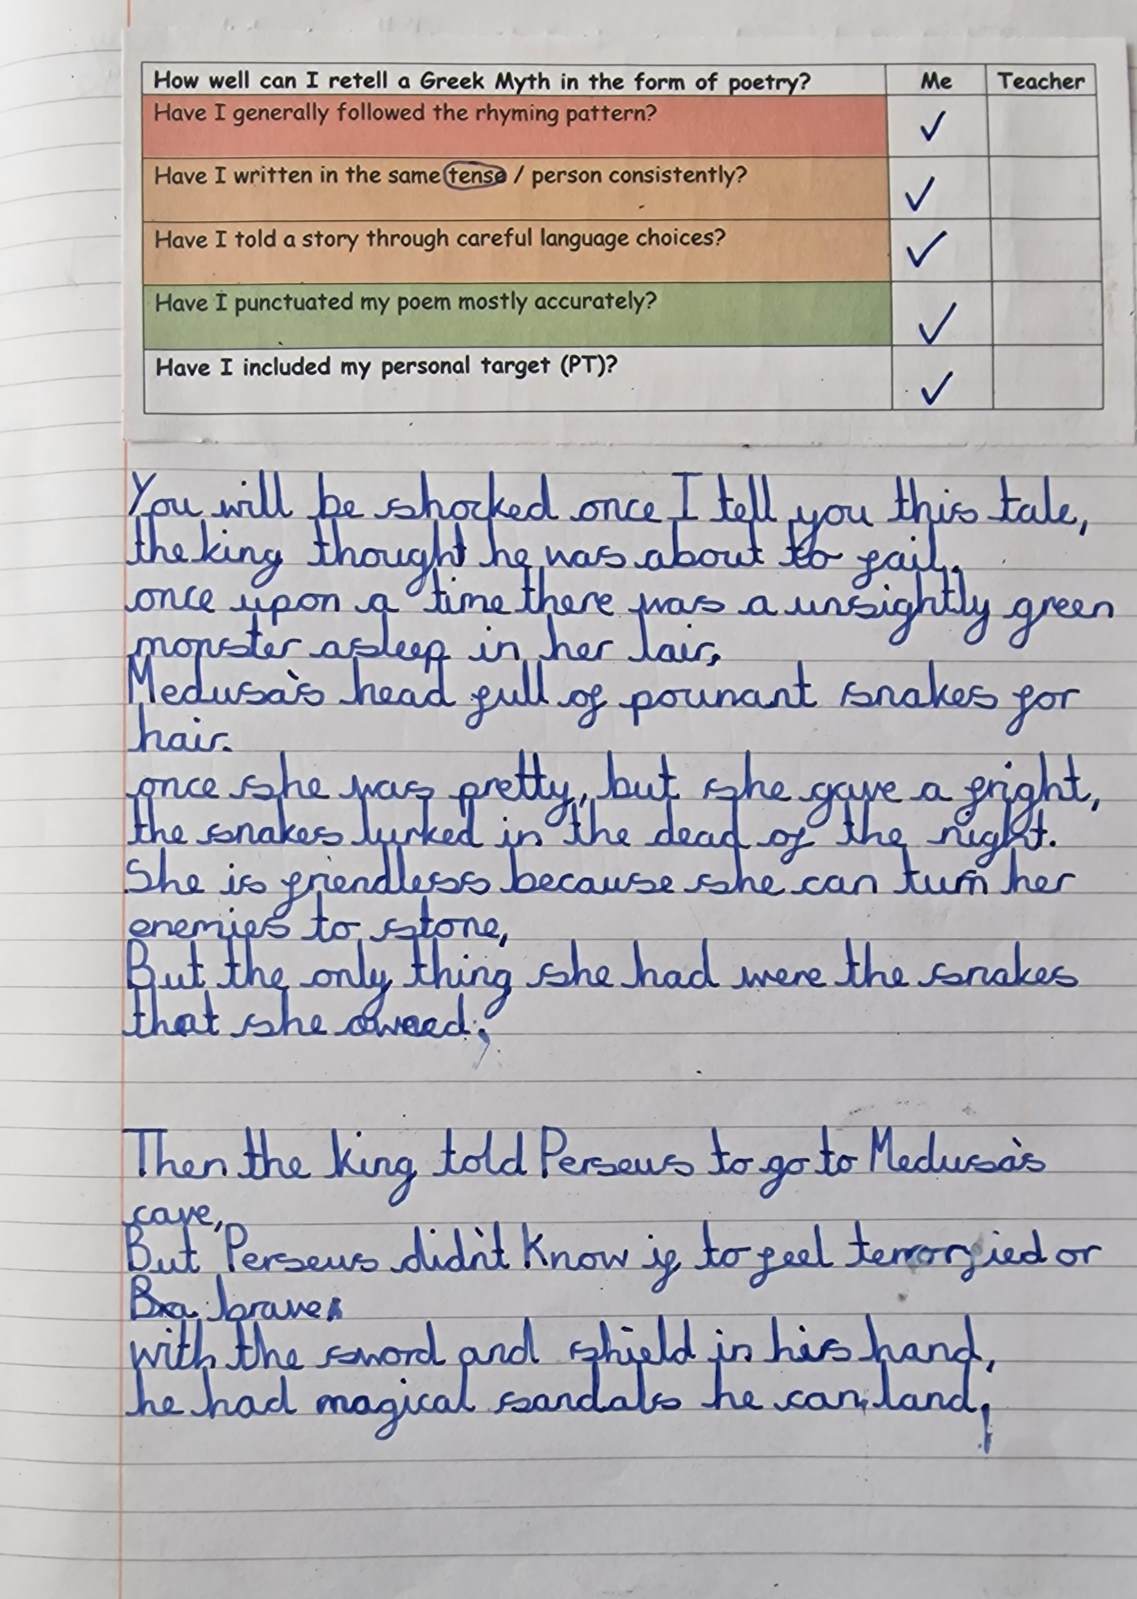 How well can I retell a Greek Myth in the form of poetry? Me Teacher
Have I generally followed the rhyming pattern? ✓
Have I written in the same tense / person consistently? ✓
Have I told a story through careful language choices? ✓
Have I punctuated my poem mostly accurately? ✓
Have I included my personal target (PT)? ✓
You will be shocked once I tell you this tale,
the king thought he was about to fail.
once upon a time there was a unsightly green
monster asleep in her lair,
Medusa's head full of pounant snakes for
hair.
once she was pretty, but she gave a fright,
the snakes lurked in the dead of the night.
She is friendless because she can turn her
enemies to stone,
But the only thing she had were the snakes
that she owead.
Then the king told Perseus to go to Medusa's
cave,
But Perseus didn't know if to feel terrorfied or
Bra brave.
with the sword and shield in his hand,
he had magical sandals he can land.